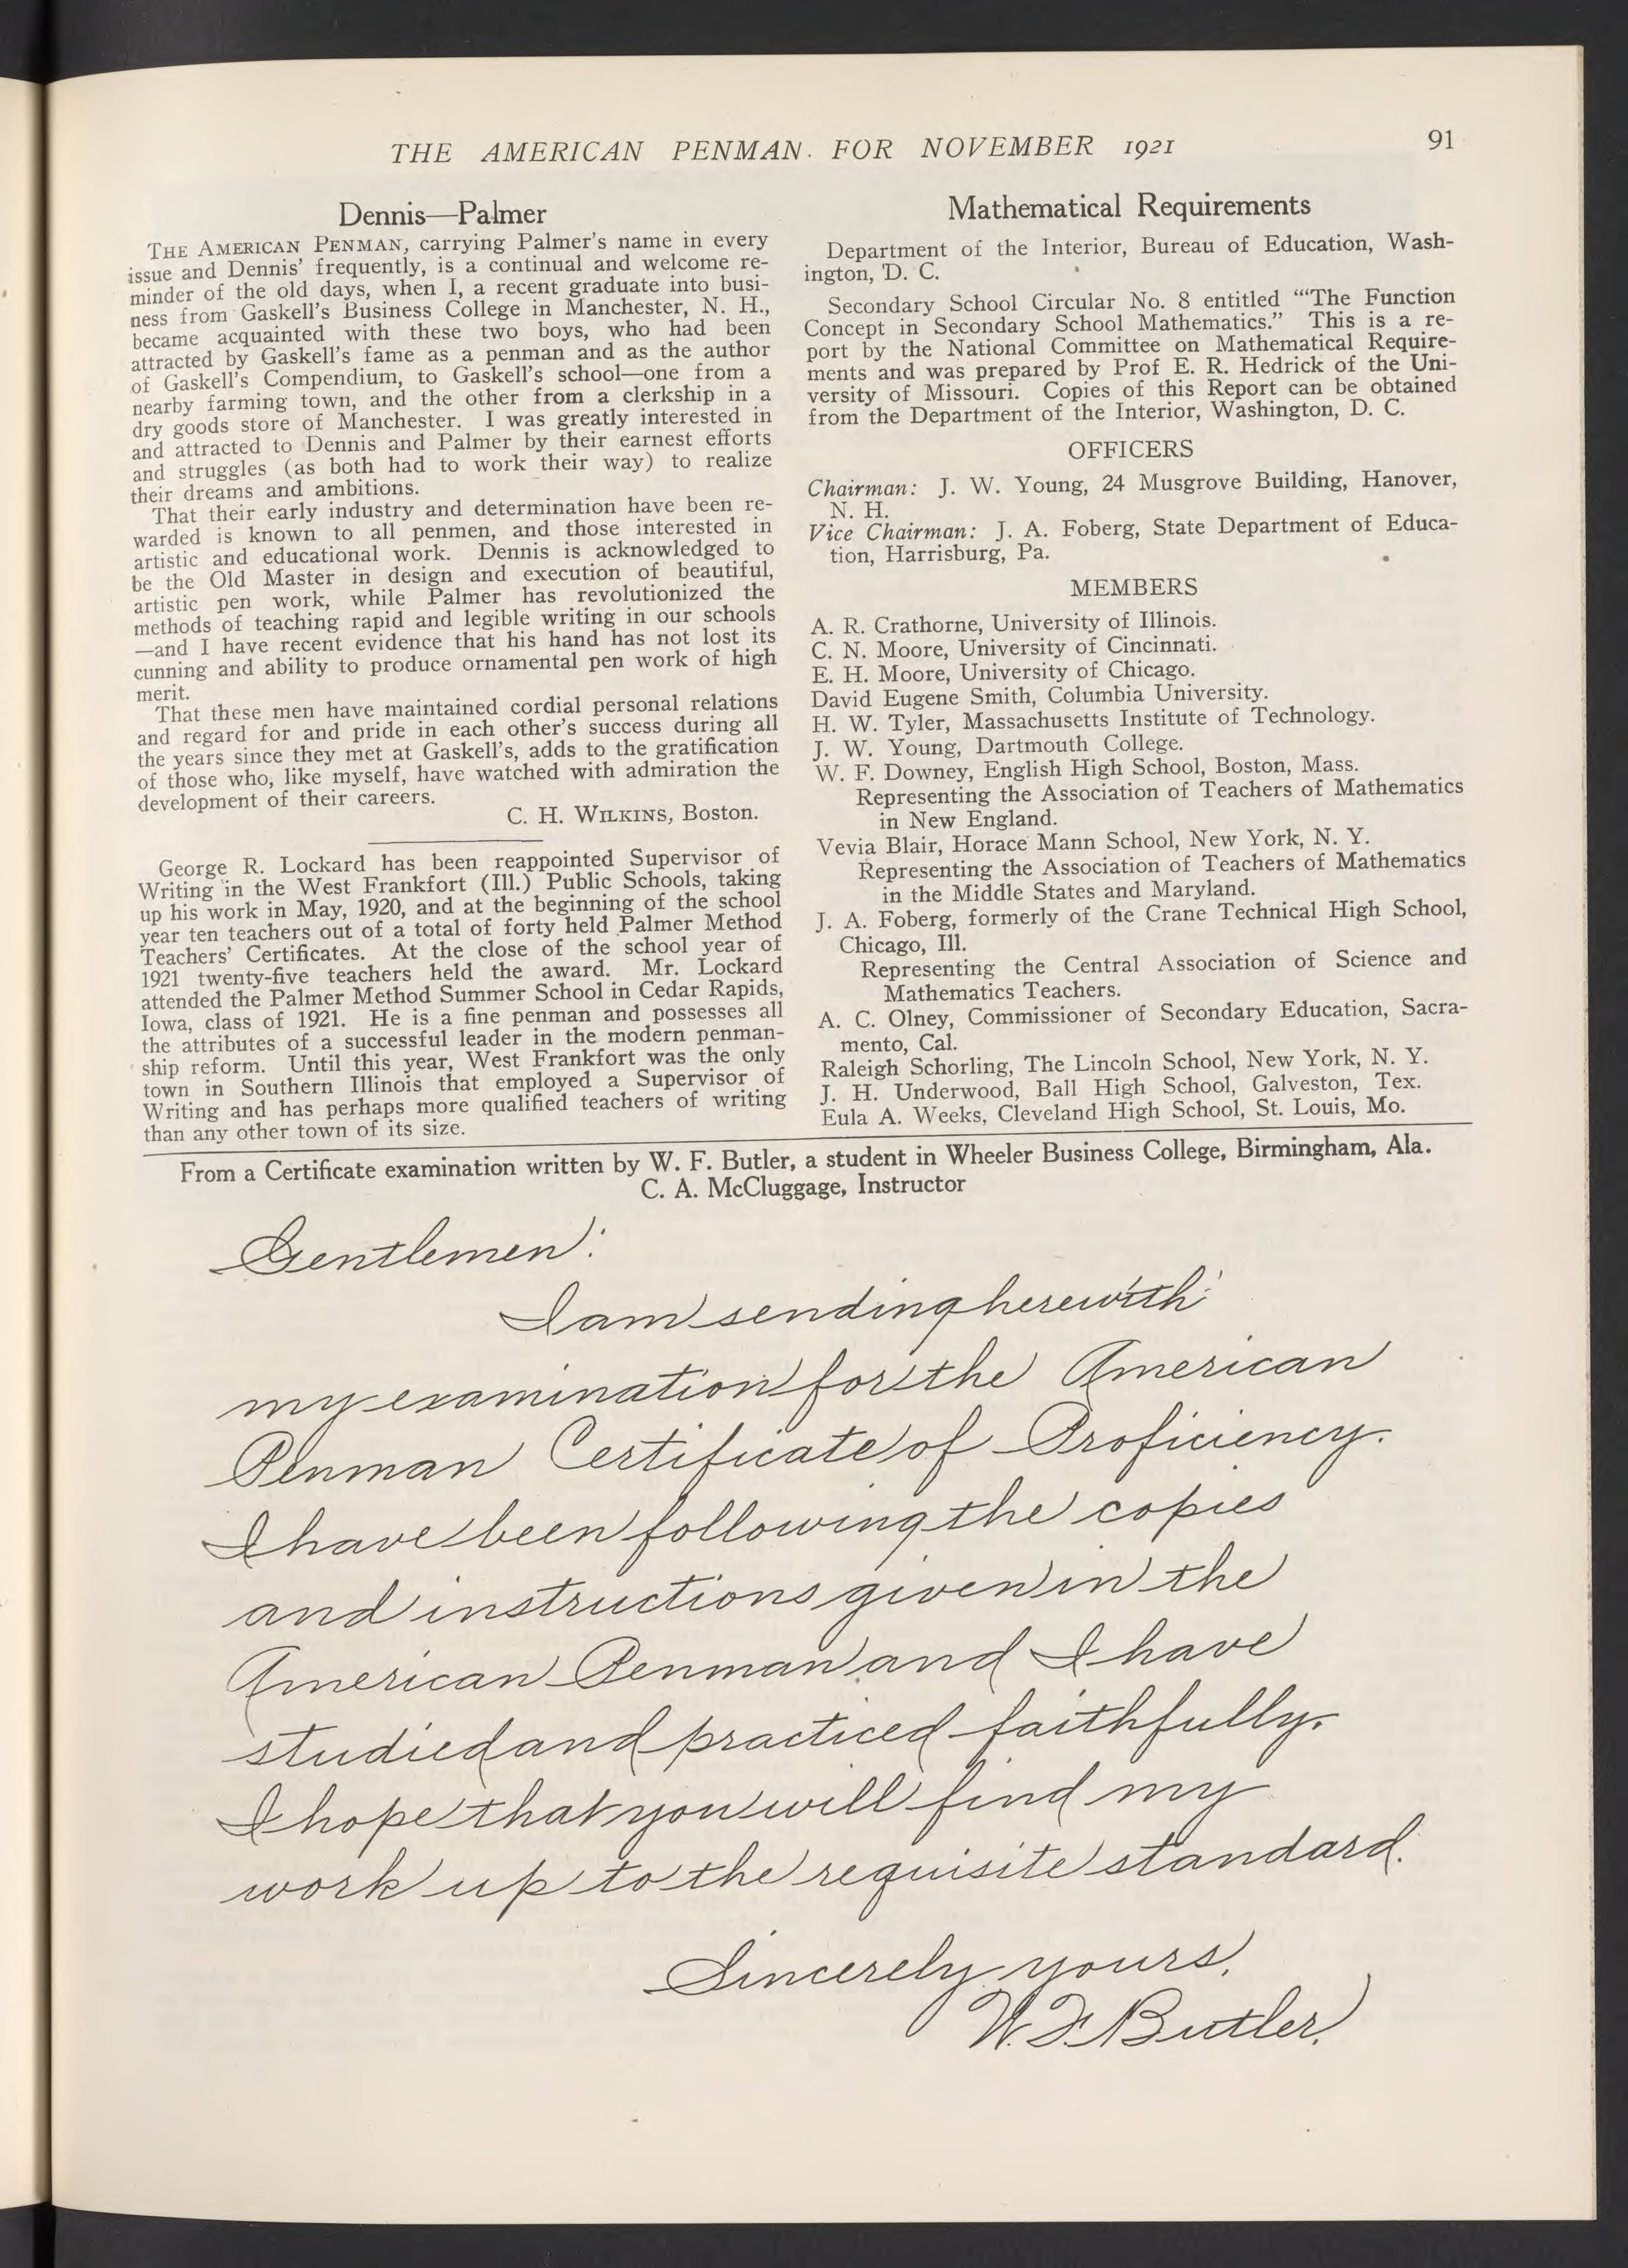 THE AMERICAN PENMAN. FOR NOVEMBER 1921
91
Dennis—Palmer
THE AMERICAN PENMAN, carrying Palmer's name in every
issue and Dennis' frequently, is a continual and welcome re-
minder of the old days, when I, a recent graduate into busi-
ness from Gaskell's Business College in Manchester, N. H.,
became acquainted with these two boys, who had been
attracted by Gaskell's fame as a penman and as the author
of Gaskell's Compendium, to Gaskell's school—one from a
nearby farming town, and the other from a clerkship in a
dry goods store of Manchester. I was greatly interested in
and attracted to Dennis and Palmer by their earnest efforts
and struggles (as both had to work their way) to realize
their dreams and ambitions.
That their early industry and determination have been re-
warded is known to all penmen, and those interested in
artistic and educational work. Dennis is acknowledged to
be the Old Master in design and execution of beautiful,
artistic pen work, while Palmer has revolutionized the
methods of teaching rapid and legible writing in our schools
—and I have recent evidence that his hand has not lost its
cunning and ability to produce ornamental pen work of high
merit.
That these men have maintained cordial personal relations
and regard for and pride in each other's success during all
the years since they met at Gaskell's, adds to the gratification
of those who, like myself, have watched with admiration the
development of their careers.
C. H. WILKINS, Boston.
George R. Lockard has been reappointed Supervisor of
Writing in the West Frankfort (Ill.) Public Schools, taking
up his work in May, 1920, and at the beginning of the school
year ten teachers out of a total of forty held Palmer Method
Teachers' Certificates. At the close of the school year of
1921 twenty-five teachers held the award. Mr. Lockard
attended the Palmer Method Summer School in Cedar Rapids,
Iowa, class of 1921. He is a fine penman and possesses all
the attributes of a successful leader in the modern penman-
ship reform. Until this year, West Frankfort was the only
town in Southern Illinois that employed a Supervisor of
Writing and has perhaps more qualified teachers of writing
than any other town of its size.
Mathematical Requirements
Department of the Interior, Bureau of Education, Wash-
ington, D. C.
Secondary School Circular No. 8 entitled "'The Function
Concept in Secondary School Mathematics." This is a re-
port by the National Committee on Mathematical Require-
ments and was prepared by Prof E. R. Hedrick of the Uni-
versity of Missouri. Copies of this Report can be obtained
from the Department of the Interior, Washington, D. C.
OFFICERS
Chairman: J. W. Young, 24 Musgrove Building, Hanover,
N. H.
Vice Chairman: J. A. Foberg, State Department of Educa-
tion, Harrisburg, Pa.
MEMBERS
A. R. Crathorne, University of Illinois.
C. N. Moore, University of Cincinnati.
E. H. Moore, University of Chicago.
David Eugene Smith, Columbia University.
H. W. Tyler, Massachusetts Institute of Technology.
J. W. Young, Dartmouth College.
W. F. Downey, English High School, Boston, Mass.
Representing the Association of Teachers of Mathematics
in New England.
Vevia Blair, Horace Mann School, New York, N. Y.
Representing the Association of Teachers of Mathematics
in the Middle States and Maryland.
J. A. Foberg, formerly of the Crane Technical High School,
Chicago, Ill.
Representing the Central Association of Science and
Mathematics Teachers.
A. C. Olney, Commissioner of Secondary Education, Sacra-
mento, Cal.
Raleigh Schorling, The Lincoln School, New York, N. Y.
J. H. Underwood, Ball High School, Galveston, Tex.
Eula A. Weeks, Cleveland High School, St. Louis, Mo.
From a Certificate examination written by W. F. Butler, a student in Wheeler Business College, Birmingham, Ala.
C. A. McCluggage, Instructor
Gentlemen:
I am sending herewith
my examination for the American
Penman Certificate of Proficiency.
I have been following the copies
and instructions given in the
American Penman and I have
studied and practiced faithfully.
I hope that you will find my
work up to the requisite standard.
Sincerely yours,
W. F. Butler.